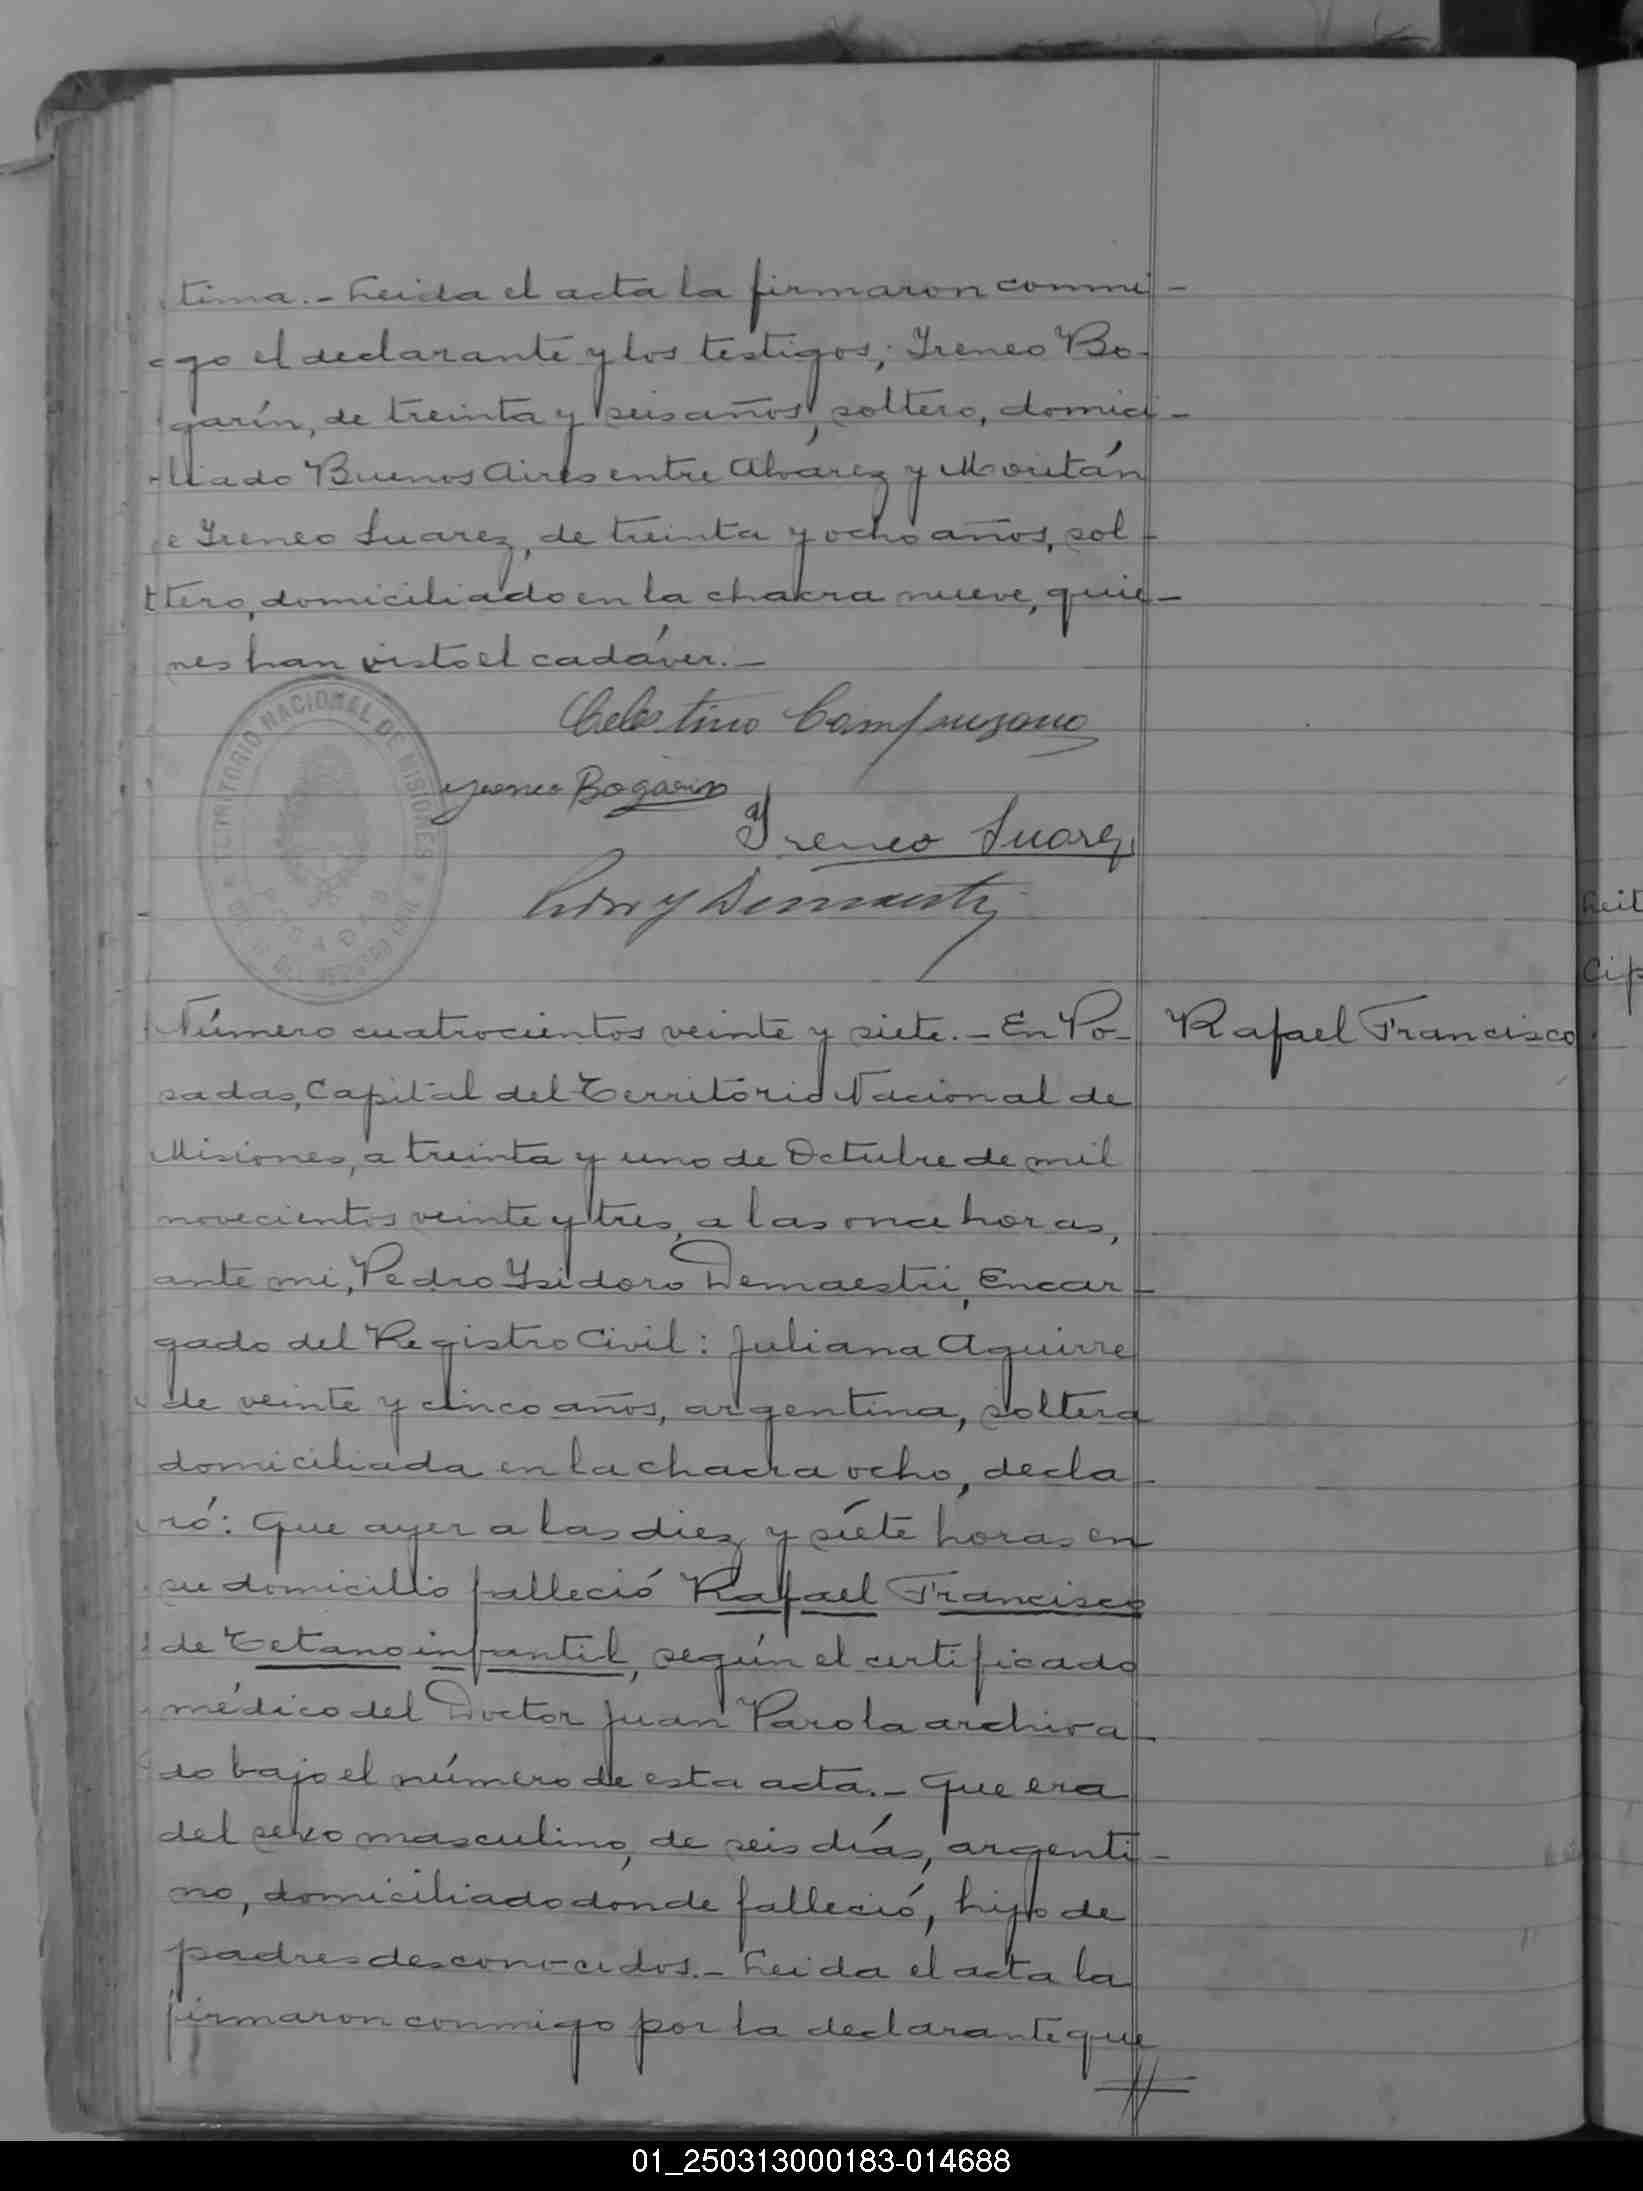 tima.- Leida el acta la firmaron conmi-
go el declarante y los testigos; Ireneo Bo-
garín, de treinta y seis años, soltero, domici-
liado Buenos Aires entre Alvarez y Moritán
e Ireneo Suarez, de treinta y ocho años, sol-
tero, domiciliado en la chacra nueve, quie-
nes han visto el cadáver.-
Celestino Campuzano
TERRITORIO NACIONAL DE MISIONES
POSADAS
Yreneo Bogarin
Ireneo Suarez
Número cuatrocientos veinte y siete.- En Po-
Rafael Francisco
sadas, Capital del Território Nacional de
Misiones, a treinta y uno de Octubre de mil
novecientos veinte y tres, a las once horas,
ante mi, Pedro Ysidoro Demaestri, Encar-
gado del Registro Civil: Juliana Aguirre
de veinte y cinco años, argentina, soltera
domiciliada en la chacra ocho, decla-
ró: Que ayer a las diez y siéte horas en
su domicilio falleció Rafael Francisco
de Tetano infantil, según el certificado
médico del Doctor Juan Parola archiva-
do bajo el número de esta acta.- Que era
del sexo masculino, de seis días, argenti-
no, domiciliado donde falleció, hijo de
padres desconocidos.- Leida el acta la
firmaron conmigo por la declarante que
01_250313000183-014688